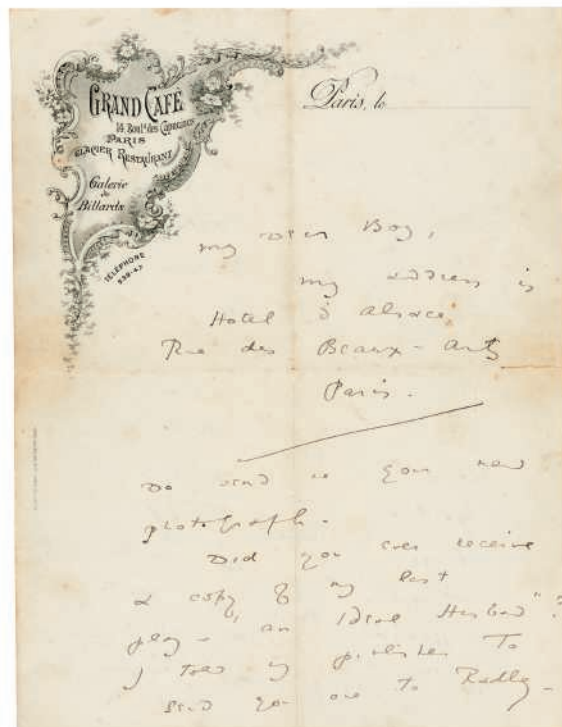 GRAND CAFÉ
14 Boul.d des Capucines
PARIS
GLACIER RESTAURANT
Galerie
de
Billards
TÉLÉPHONE
Paris, le
my dear Boy,
my address is
Hotel d'Alsace,
Rue des Beaux-Arts
Paris.
Do send me your new
photograph.
Did you ever receive
a copy of my last
play - "an Ideal Husband"?
I told my publisher to
send you one to Radley -